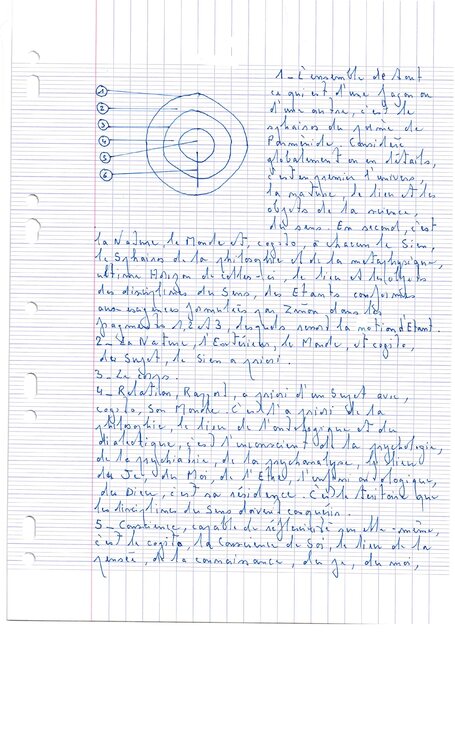 1
2
3
4
5
6
1 - L'ensemble de tout
ce qui est d'une façon ou
d'une autre, c'est le
sphairos du poème de
Parménide. Considéré
globalement ou en détails,
c'est en premier l'univers,
la nature, le lieu et les
objets de la science,
du sens. En second, c'est
la Nature, le Monde et, cogito, à chacun le Sien,
le Sphairos de la philosophie et de la métaphysique,
ultime Horizon de celles-ci, le lieu et les objets
des disciplines du Sens, des Etants conformes
aux exigences formulées par Zénon dans les
fragments 1, 2 et 3, desquels ressort la notion d'Etant.
2 - La Nature, l'Extérieur, le Monde, et cogito,
du Sujet, le Sien a priori.
3 - Le corps.
4 - Relation, Rapport, a priori d'un Sujet avec,
cogito, Son Monde. C'est l'a priori de la
philosophie, le lieu de l'ontologique et du
dialectique, c'est l'inconscient de la psychologie,
de la psychiatrie, de la psychanalyse, le lieu
du Je, du Moi, de l'Etre, l'ontologique,
du Dieu, c'est sa résidence. C'est le territoire que
les disciplines du Sens doivent conquérir.
5 - Conscience, capable de réflexivité sur elle-même,
c'est le cogito, la Conscience de Soi, le lieu de la
pensée, de la connaissance, du je, du moi,